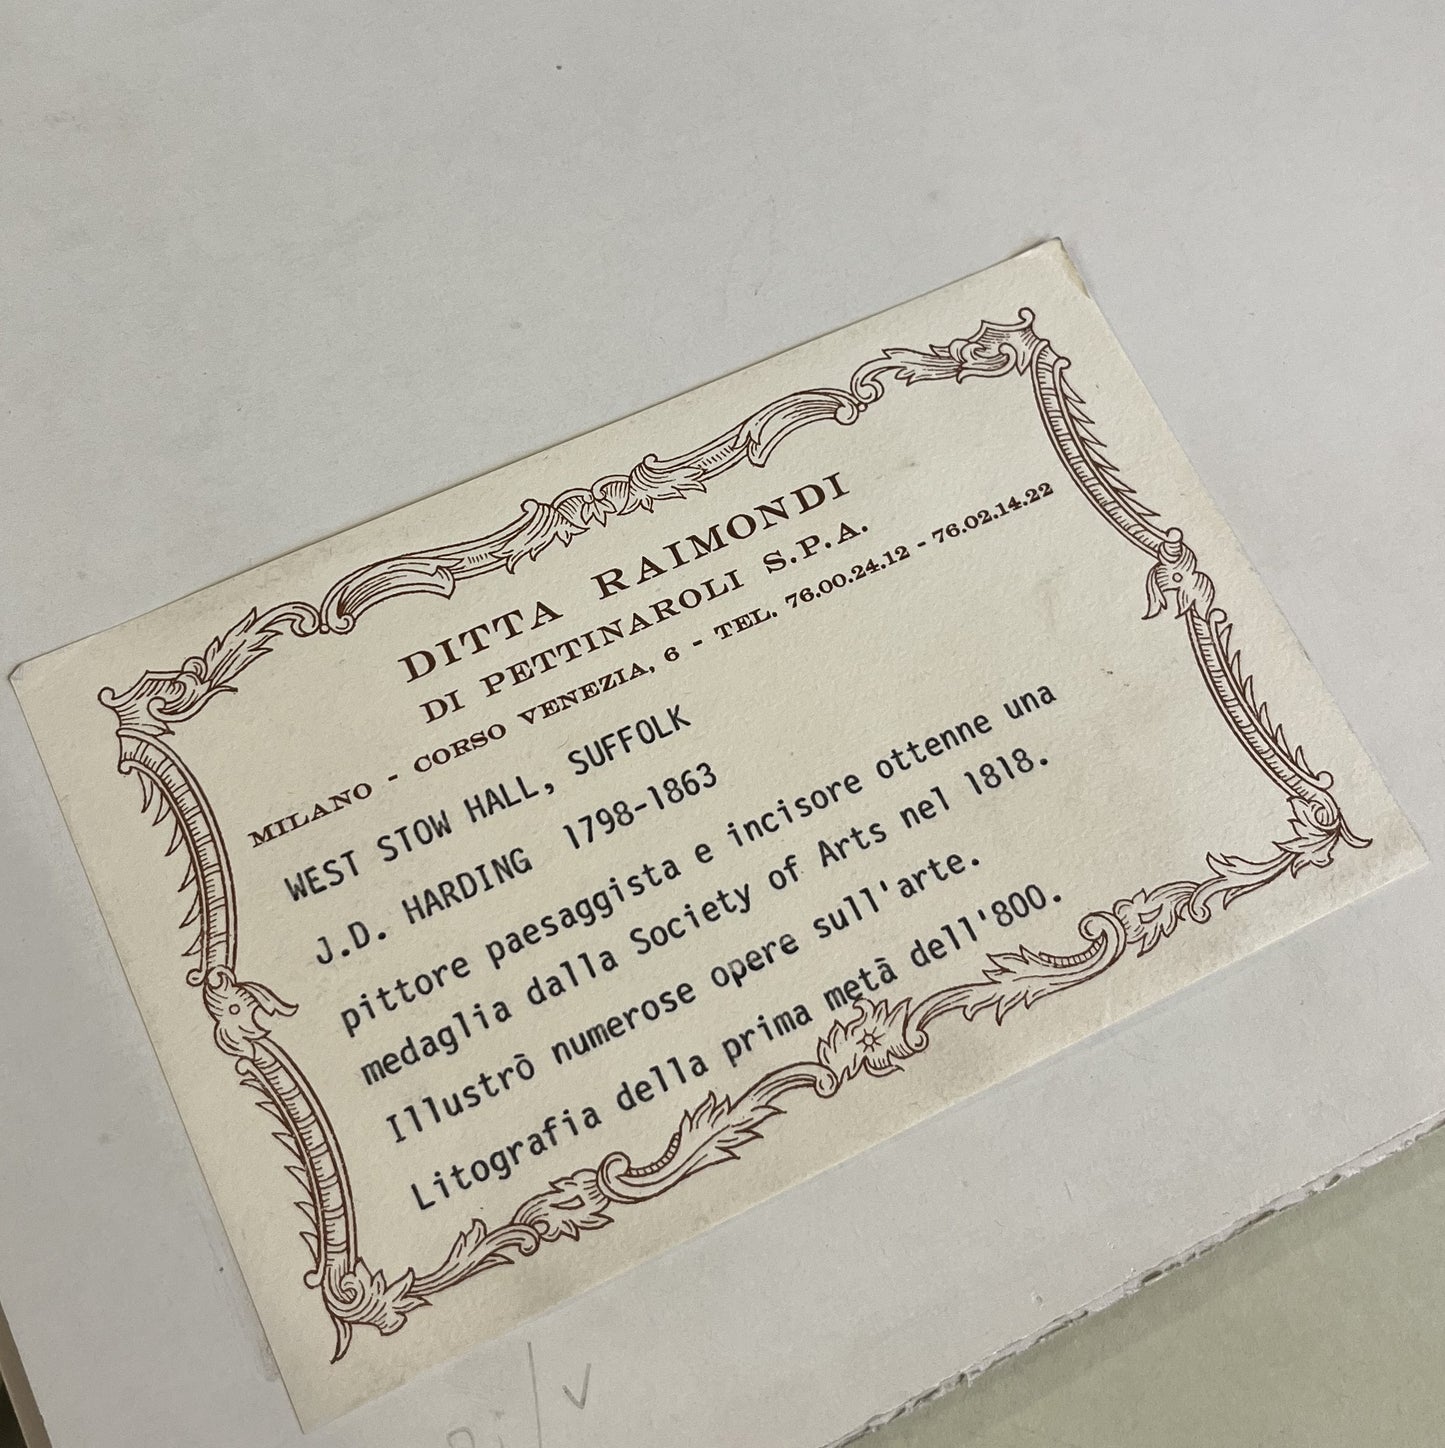 DITTA RAIMONDI
DI PETTINAROLI S.P.A.
MILANO - CORSO VENEZIA, 6 - TEL. 76.00.24.12 - 76.02.14.22
WEST STOW HALL, SUFFOLK
J.D. HARDING 1798-1863
pittore paesaggista e incisore ottenne una
medaglia dalla Society of Arts nel 1818.
Illustrò numerose opere sull'arte.
Litografia della prima metà dell'800.